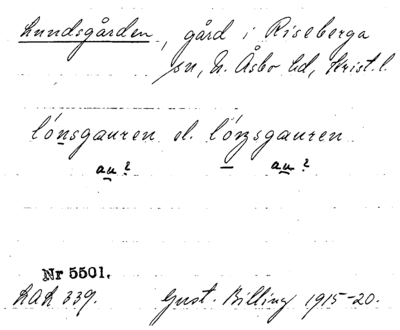 Lundsgården, gård i Riseberga
sn, N. Åsbo hd, Krist. l.
lónsgauren el. lónsgauren
au? — au?
Nr 5501.
LAL 339. Gust. Billing 1915-20.